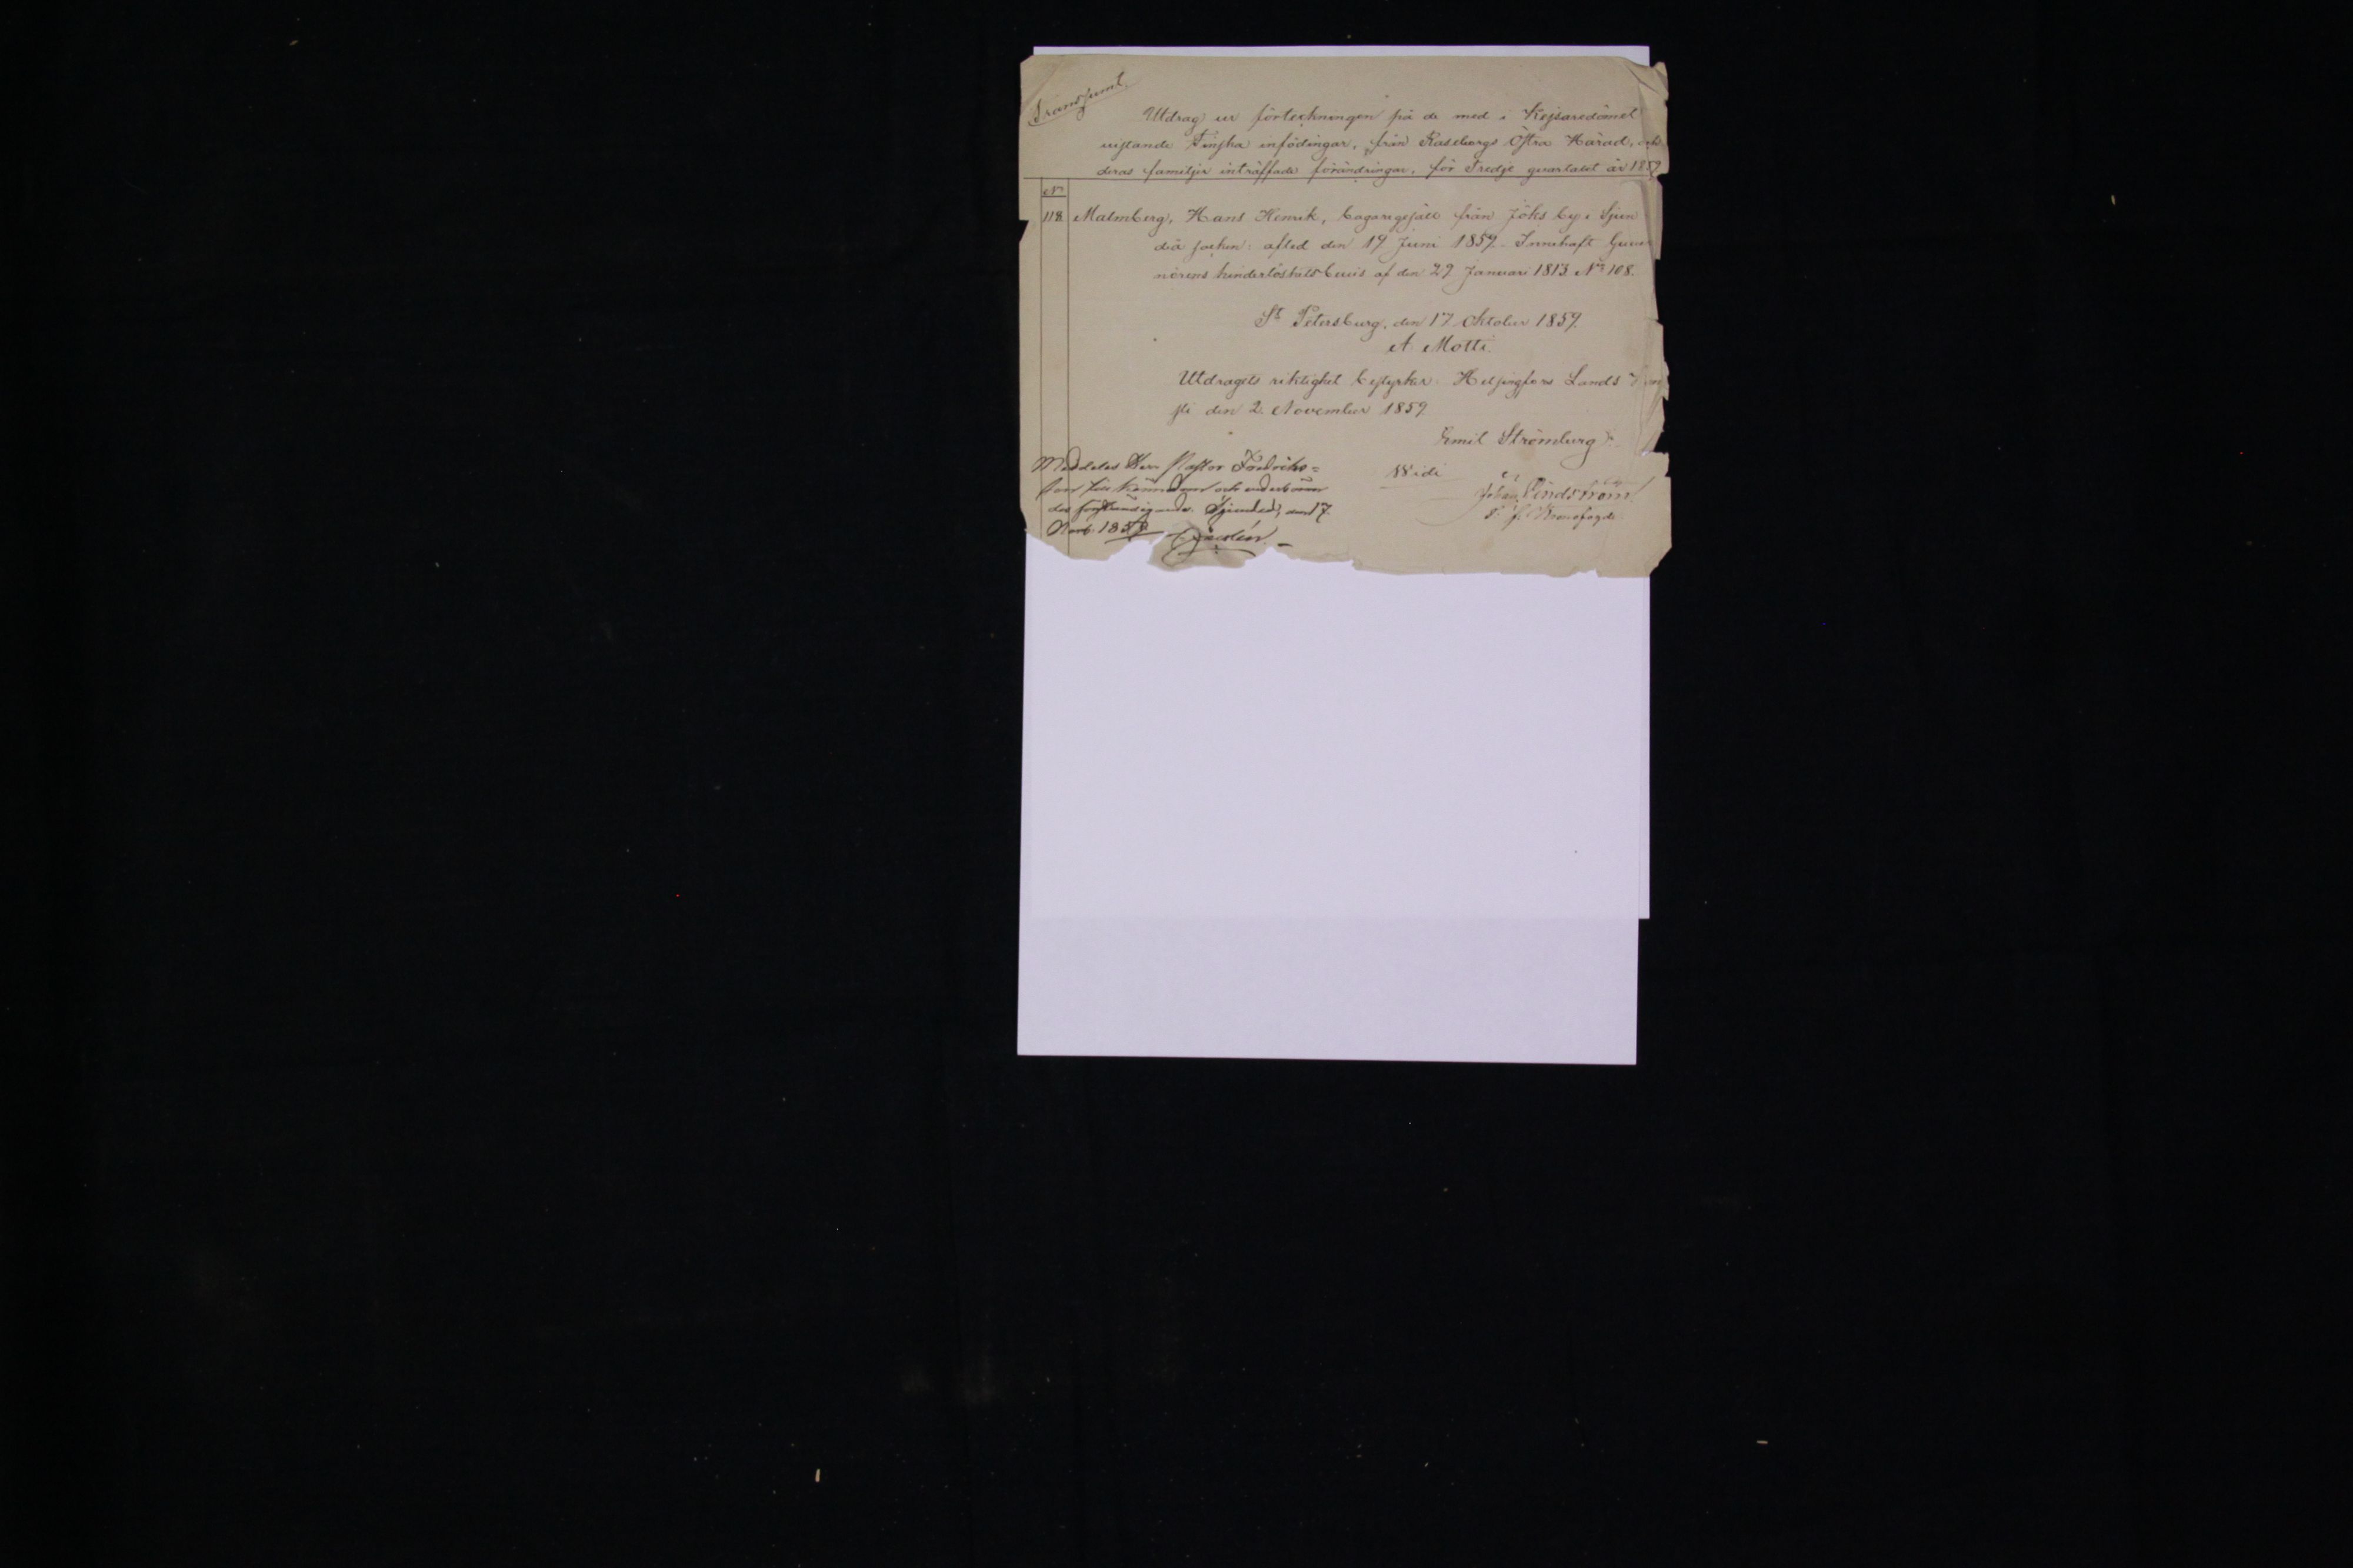 Transsumt.
Utdrag ur förteckningen på de med i Kejsaredömet
vistande Finska infödingar, från Raseborgs Östra Härad, och
deras familjer inträffade förändringar, för Tredje qvartalet år 1859
No
118. Malmberg, Hans Henrik, bagaregesäll från Jöks by i Sjun
deå socken: afled den 19 Juni 1859. Innehaft Guver
nörens hinderlöshets bevis af den 29 Januari 1813 No 108.
St Petersburg, den 17 Oktober 1859.
A Motti.
Utdragets riktighet bestyrker. Helsingfors Lands Kan
sli den 2. November 1859.
Emil Strömberg
Meddelas Herr Pastor Fredriks=
son till kännedom och
den 17
Novb. 1859
Widi
Johan Lindström.
T. f. Kronofogde